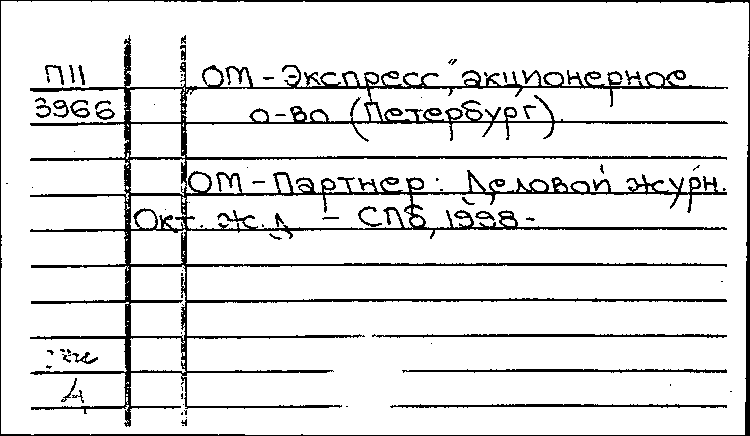 П11 „ОМ-Экспресс", акционерное
3966 о-во (Петербург).
ОМ-Партнер: Деловой журн.
Окт. ж.д – СПб, 1998-
Д